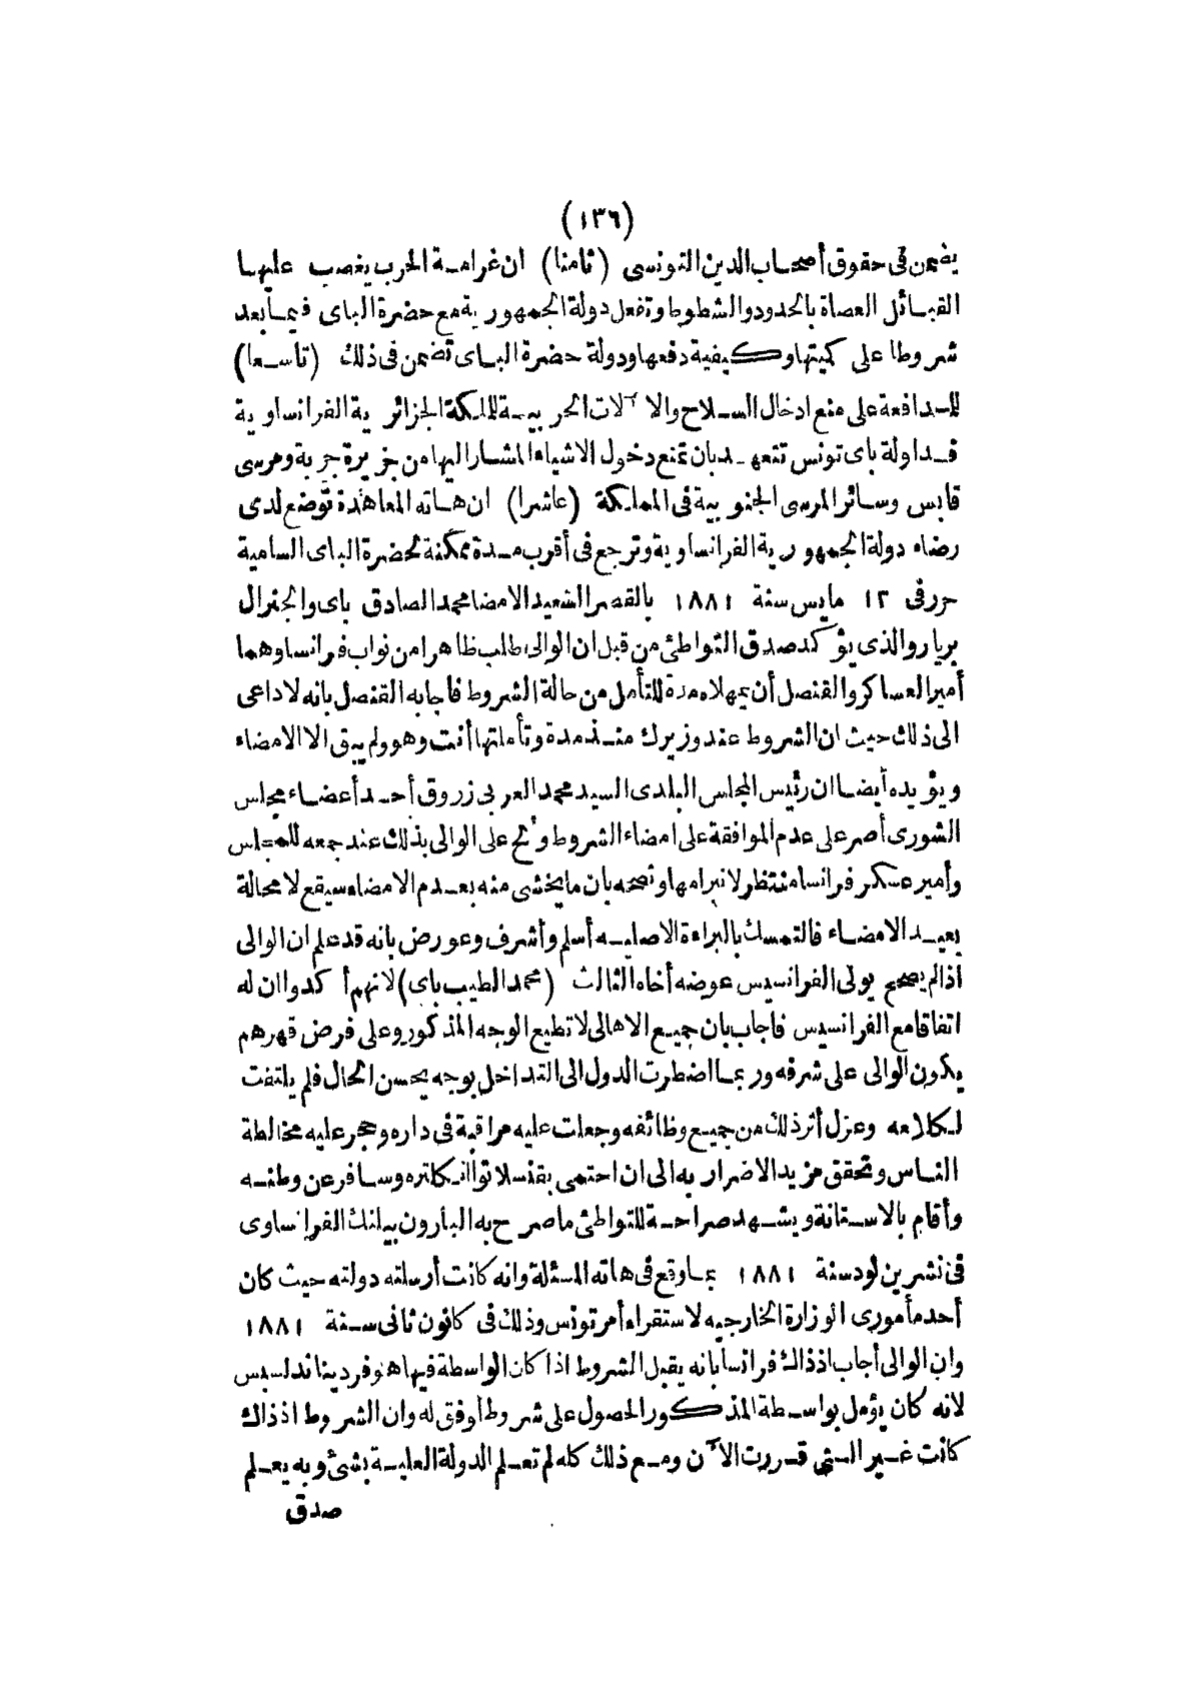 (١٣٦)
يضمن فى حقوق أصحاب الدين التونسى (ثامنا) ان غرامة الحرب يغصب عليها
القبائل العصاة بالحدود والشطوط وتفعل دولة الجمهورية مع حضرة الباى فيما بعد
شروطا على كميتها وكيفية دفعها ودولة حضرة الباى تضمن فى ذلك (تاسعا)
للمدافعة على منع ادخال السلاح والا⁧لات الحربية للملكة الجزائرية الفرانساوية
فداولة باى تونس تتعهد بان تمنع دخول الاشياء المشار اليها من جزيرة جربة ومرسى
قابس وسائر المرسى الجنوبية فى المملكة (عاشرا) ان هاته المعاهدة توضع لدى
رضاء دولة الجمهورية الفرانساوية وترجع فى أقرب مدة ممكنة لحضرة الباى السامية
حرر فى ١٢ مايس سنة ١٨٨١ بالقصر السعيد الامضا محمد الصادق باى والجنرال
بريار والذى يؤكد صدق التواطئ من قبل ان الوالى طلب ظاهرا من نواب فرانسا وهما
أمير العساكر والقنصل أن يمهلاه مدة للتأمل من حالة الشروط فاجابه القنصل بانه لا داعى
الى ذلك حيث ان الشروط عند وزيرك منذ مدة وتأملتها أنت وهو ولم يبق الا الامضاء
ويؤيده أيضا ان رئيس المجلس البلدى السيد محمد العربى زروق أحد أعضاء مجلس
الشورى أصر على عدم الموافقة على امضاء الشروط وألح على الوالى بذلك عند جمعه للمجلس
وأمير عسكر فرانسا منتظر لانبرامها ونصحه بان ما يخشى منه بعدم الامضاء سيقع لا محالة
بعيد الامضاء فالتمسك بالبراءة الاصلية أسلم وأشرف وعورض بانه قد علم ان الوالى
اذا لم يصحح يولى الفرانسيس عوضه أخاه الثالث (محمد الطيب باى) لانهم أكدوا ان له
اتفاقا مع الفرانسيس فاجاب بان جميع الاهالى لا تطيع الوجه المذكور وعلى فرض قهرهم
يكون الوالى على شرفه وربما اضطرت الدول الى التداخل بوجه يحسن الحال فلم يلتفت
لكلامه وعزل أثر ذلك من جميع وظائفه وجعلت عليه مراقبة فى داره وحجر عليه مخالطة
الناس وتحقق مزيد الاضرار به الى ان احتمى بقنسلاتو انكلتره وسافر عن وطنه
وأقام بالاستانة ويشهد صراحة للتواطئ ما صرح به البارون بيلنك الفرانساوى
فى تشرين لود سنة ١٨٨١ بما وقع فى هاته المسئلة وانه كانت أرسلته دولته حيث كان
أحد مأمورى الوزارة الخارجيه لاستقراء أمر تونس وذلك فى كانون ثانى سنة ١٨٨١
وان الوالى أجاب اذذاك فرانسا بانه يقبل الشروط اذا كان الواسطة فيها هو فرديناند لسبس
لانه كان يؤمل بواسطة المذكور الحصول على شروط أوفق له وان الشروط اذذاك
كانت غير التى قررت الآن ومع ذلك كله لم تعلم الدولة العلية بشئ وبه يعلم
صدق